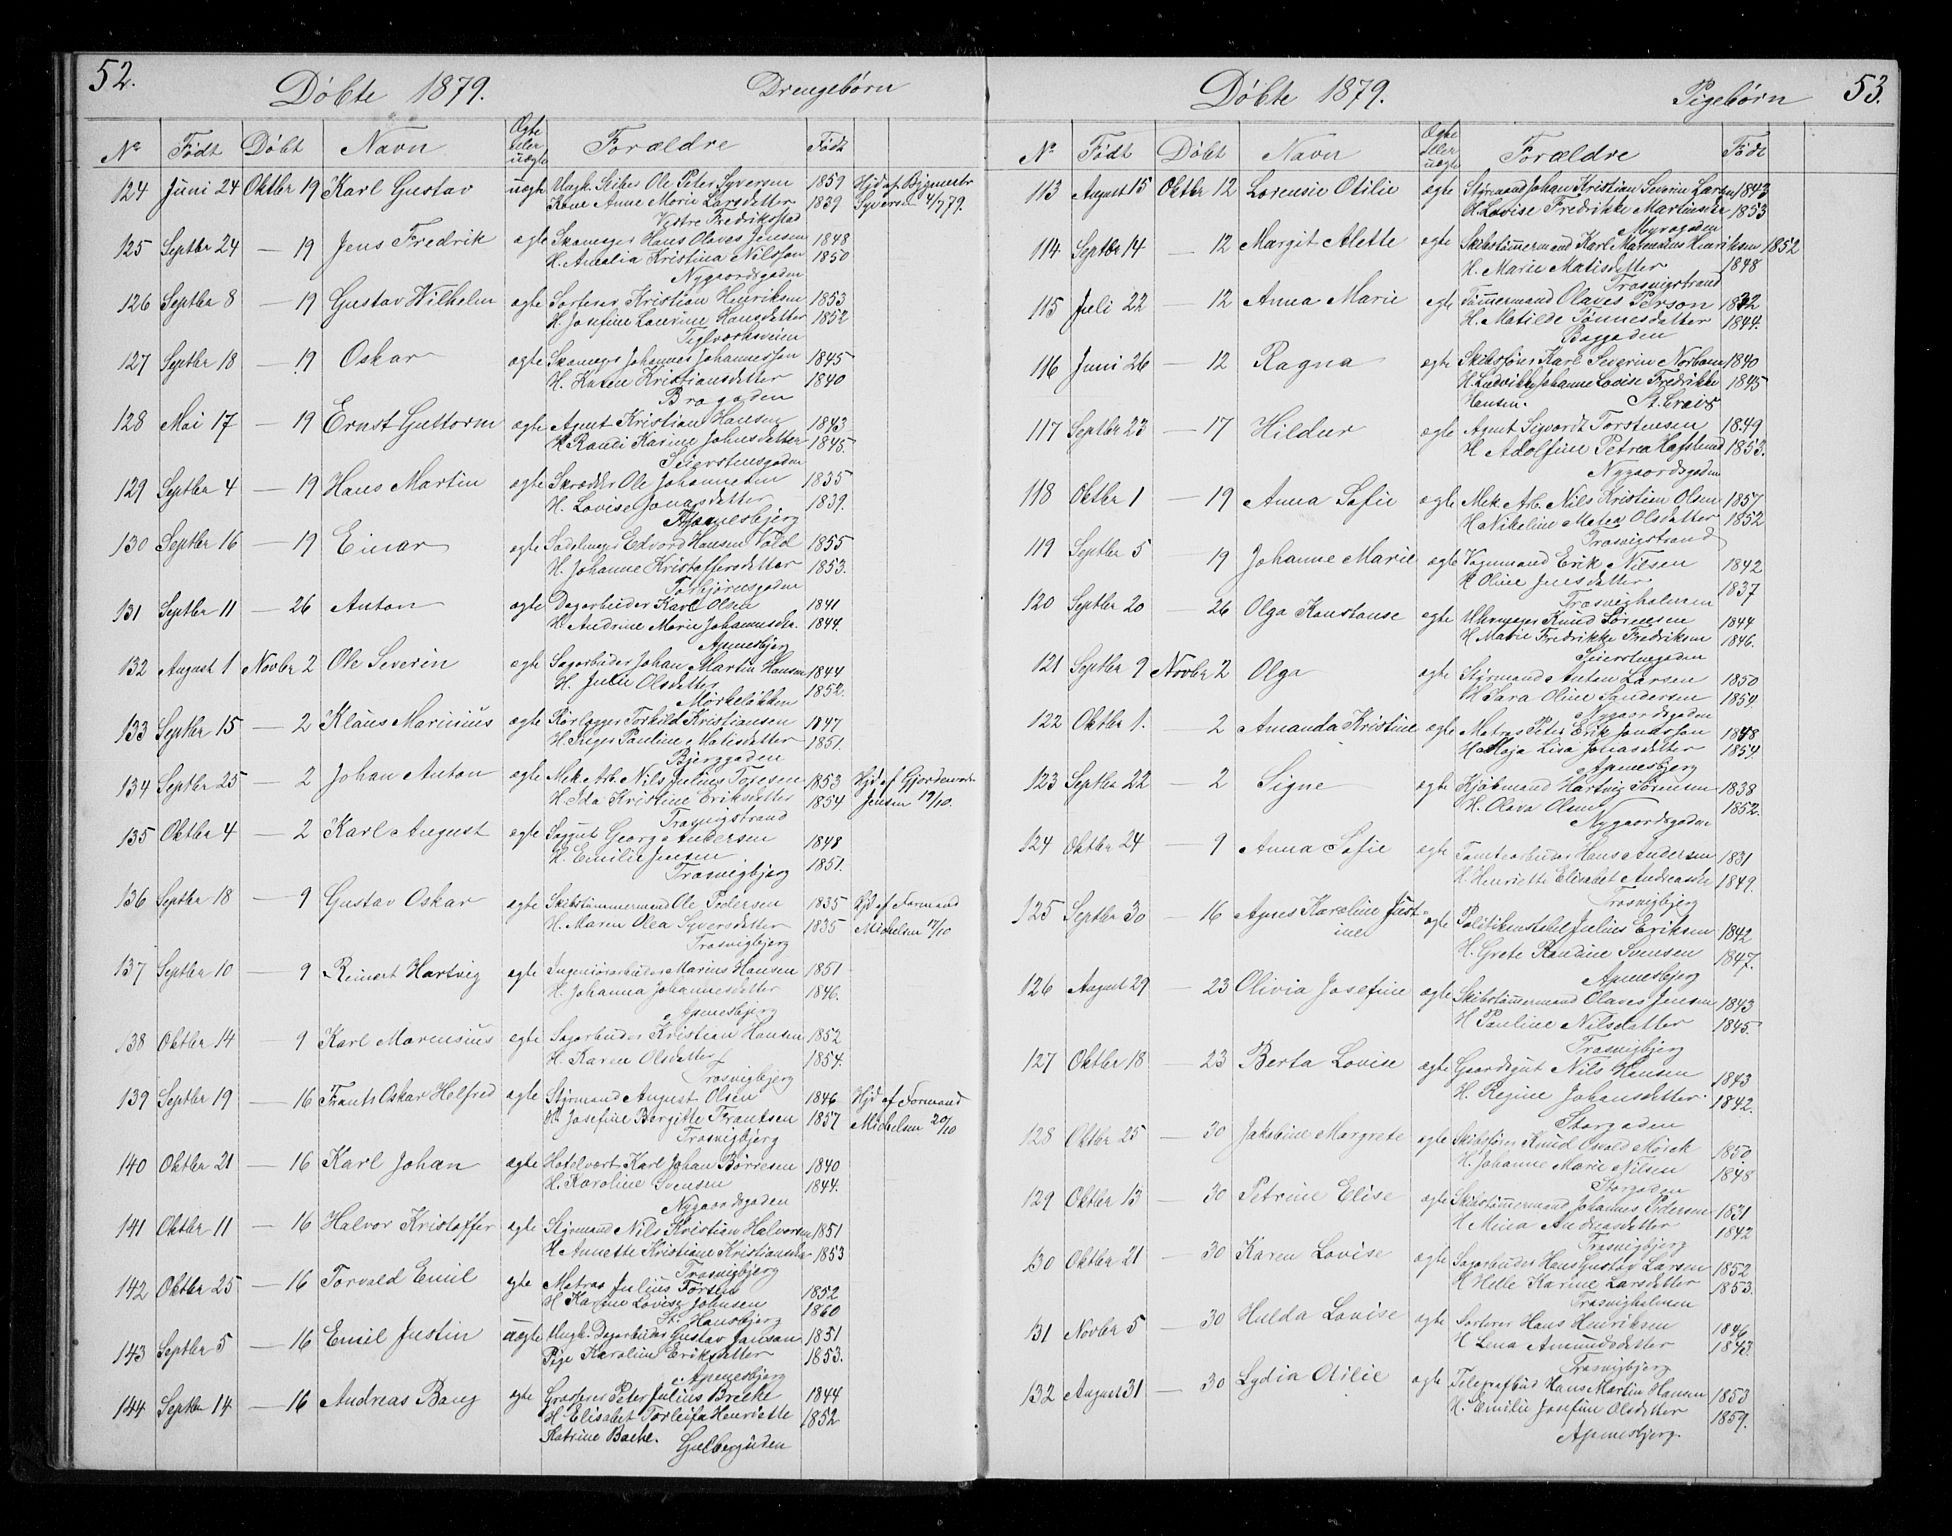 52.
Döbte 1879.
Drengebørn
Nº Födt Döbt Navn Ægte eller uægte Forældre Födt
124 Juni 24 Oktbr 19 Karl Gustav uægte Ungk. Ole Peter Syversen 1859 Hjd af
Kone Anne Marie Larsdatter 1839 Syversen 4/7 79.
Vestre Fredrikstad
125 Septbr 24 — 19 Jens Fredrik ægte Skomager Hans Olaves Jensen 1848
H. Amalia Kristina Nilsson 1850
Nygaardsgaden
126 Septbr 8 — 19 Gustav Wilhelm ægte Sorterer Kristian Henriksen 1853
H. Josefine Laurine Hansdatter 1852
Teglværksveien
127 Septbr 18 — 19 Oskar ægte Skomager Johannes Johannesson 1845
H. Karen Kristiansdatter 1840
Brogaden
128 Mai 17 — 19 Ernst Guttorm ægte Agent Kristian Hansen 1843
H Randi Karine Johnsdatter 1845.
Seierstensgaden
129 Septbr 4 — 19 Hans Martin ægte Skrædder Ole Johannesen 1835
H. Lovise Jonasdatter 1839.
Apenesbjerg
130 Septbr 16 — 19 Einar ægte Sadelmager Edvard Hansen Vold 1855
H. Johanne Kristoffersdatter 1853.
Torbjørnsgaden
131 Septbr 11 — 26 Anton ægte Dagarbeider Karl Olsen 1841
H. Andrine Marie Johannesdtr. 1844.
Apenesbjerg
132 August 1 Novbr 2 Ole Severin ægte Sagarbeider Johan Martin Hansen 1844
H. Julie Olsdatter 1852.
Mørkeløkken
133 Septbr 15 — 2 Klaus Marinius ægte Rørlægger Torkild Kristiansen 1847
H. Inger Pauline Matisdatter 1851.
Bjerggaden
134 Septbr 25 — 2 Johan Anton ægte Mek Arb. Nils Julius Toresen 1853 Hjd af Gjordemoder
H. Ida Kristine Eriksdatter 1854 Jensen 19/10.
Trosvigstrand
135 Oktbr 4 — 2 Karl August ægte Saggut Georg Andersen 1848
H. Emilie Jensen 1851.
Trosvigbjerg
136 Septbr 18 — 9 Gustav Oskar ægte Skibstømmermand Ole Pedersen 1835 Hjd af Formand
H. Maren Olea Syversdatter 1835 Mickelsen 17/10
Trosvigbjerg
137 Septbr 10 — 9 Reinert Hartvig ægte Ingeniørarbeider Marius Hansen 1851
H. Johanna Johannesdatter 1846.
Apenesbjerg
138 Oktbr 14 — 9 Karl Marensius ægte Sagarbeider Kristian Hansen 1852
H. Karen Olsdatter 1854.
Trosvigbjerg
139 Septbr 19 — 16 Frants Oskar Helfred ægte Styrmand August Olsen 1846 Hjd af Formand
H. Josefine Bergitte Frantsen 1857 Mickelsen 20/10
Trosvigbjerg
140 Oktbr 21 — 16 Karl Johan ægte Hotelvært Karl Johan Børresen 1840
H. Karoline Svensen 1844.
Nygaardsgaden
141 Oktbr 11 — 16 Halvor Kristoffer ægte Styrmand Nils Kristian Halvorsen 1851
H. Annette Kristiane Kristiansdtr 1853
Trosvigbjerg
142 Oktbr 25 — 16 Torvald Emil ægte Matros Julius Torsen 1852
H Karine Lovise Johnsen 1860
St. Hansbjerg
143 Septbr 5 — 16 Emil Justin uægte Ungk. Dagarbeider Gustav Jansen 1851
Pige Karoline Eriksdatter 1853.
Apenesbjerg
144 Septbr 14 — 16 Andreas Bang ægte Grosserer Peter Julius Breche 1844
H. Elisabet Torleifa Henriette 1852
Katrine Bache.
Gjelbergaden
53.
Döbte 1879.
Pigebørn
Nº Födt Döbt Navn Ægte eller uægte Forældre Födt
113 August 15 Oktbr 12 Lorensie Otilie ægte Styrmand Johan Kristian Severin Larsen 1843
H. Lovise Fredrikke Martinsdtr 1853
Myragaden
114 Septbr 14 — 12 Margit Alette ægte Skibstømmermand Karl Henriksen 1852
H. Marie Matisdatter 1848
Trosvigstrand
115 Juli 22 — 12 Anna Marie ægte Tømmermand Olaves Person 1832
H. Matilde Tønnesdatter 1844.
Baggaden
116 Juni 26 — 12 Ragna ægte Skibsfører Karl Severin Norbom 1840
H. Ludvikke Johanne Lovise Fredrikke 1845
Hansen. St. Croix
117 Septbr 23 — 17 Hildur ægte Agent Sigvardt Torstensen 1849
H Adolfine Petrea Hafslund 1853.
Nygaardsgaden
118 Oktbr 1 — 19 Anna Sofie ægte Mek Arb. Nils Kristian Olsen 1857
H Nikoline Matea Olsdatter 1852
Trosvigstrand
119 Septbr 5 — 19 Johanne Marie ægte Vognmand Erik Nilsen 1842
H Oline Jensdatter 1837
Trosvigholmen
120 Septbr 20 — 26 Olga Konstanse ægte Uhrmager Knud Sørensen 1844
H Marie Fredrikke Fredriksen 1846.
Seierstensgaden
121 Septbr 9 Novbr 2 Olga ægte Styrmand Anton Larsen 1850
H Sara Oline Sandersen 1859
Nygaardsgaden
122 Oktbr 1. — 2 Amanda Kristine ægte Matros Peter Erik Jonasson 1848
H Maja Lisa Jonasdatter 1854.
Apenesbjerg
123 Septbr 22 — 2 Signe ægte Kjøbmand Hartvig Sørensen 1838
H. Olava Olsen 1852.
Nygaardsgaden
124 Oktbr 24 — 9 Anna Sofie ægte Tomtearbeider Hans Andersen 1831
H. Henriette Elisabet Andreasdtr 1849.
Trosvigbjerg
125 Septbr 30 — 16 Agnes Karoline Just- ægte Politikonstabel Julius Eriksen 1842
ine
H. Grete Randine Svensen 1847.
Apenesbjerg
126 August 29 — 23 Olivia Josefine ægte Skibstømmermand Olaves Jensen 1843
H Pauline Nilsdatter 1845.
Trosvigbjerg
127 Oktbr 18 — 23 Berta Lovise ægte Gaardsgut Nils Hansen 1843
H. Regine Johansdatter 1842.
Storgaden
128 Oktbr 25 — 30 Jakobine Margrete ægte Skibsfører Knud Mørck 1850
H. Johanne Marie Nilsen 1848
Storgaden
129 Oktbr 13 — 30 Petrine Elise ægte Skibstømmermand Johannes Pedersen 1831
H Mina Andreasdatter 1842
Trosvigbjerg
130 Oktbr 21 — 30 Karen Lovise ægte Sagarbeider Hans Gustav Larsen 1852
H Helle Karine Larsdatter 1853.
Trosvigholmen
131 Novbr 5 — 30 Hulda Lovise ægte Sorterer Hans Henriksen 1846
H Lena Amundsdatter 1843.
Trosvigbjerg
132 August 31 — 30 Lydia Otilie ægte Telegrafbud Hans Martin Hansen 1853
H. Emilie Josefine Olsdatter 1859.
Apenesbjerg.